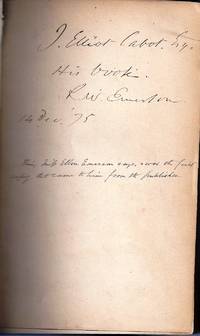 J. Elliot Cabot, Esq.
His book.
R.W. Emerson
14 Dec. '75
This, Miss Ellen Emerson says, was the first
copy that came to him from the publisher